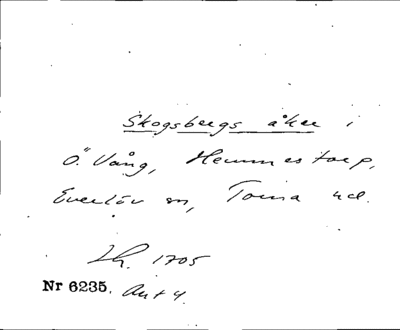 Skogsbergs åker i
Ö. Vång, Hemmestorp,
Everlöv sn, Torna hd.
Lh. 1705
Nr 6235. Akt 4.